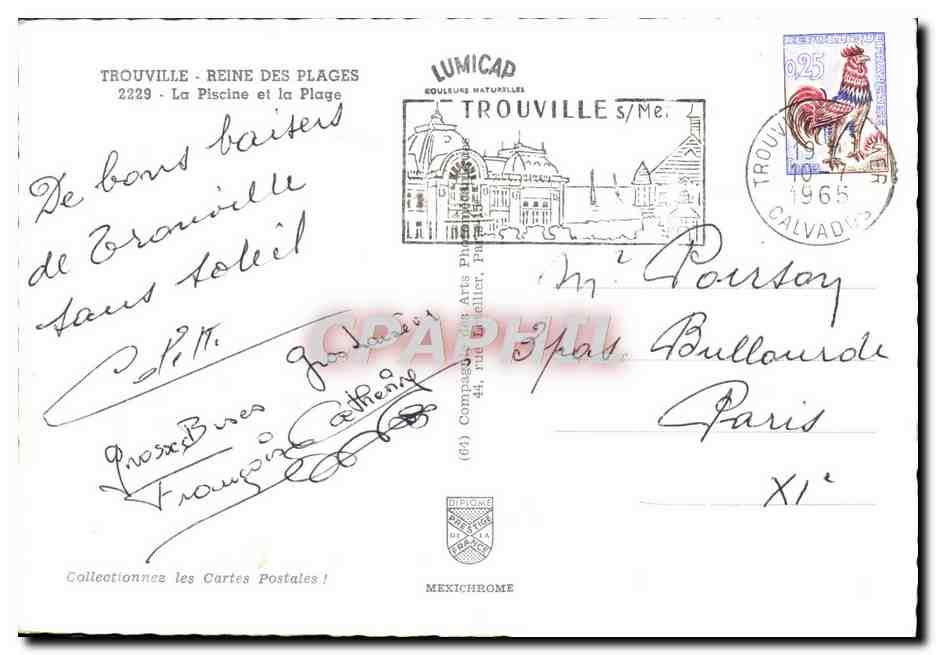 TROUVILLE - REINE DES PLAGES
2229 - La Piscine et la Plage
De bons baisers
de Trouville
sans soleil
Colette
Gros baisers
Catherine
Grosses Bises
François
Collectionnez les Cartes Postales !
LUMICAP
COULEURS NATURELLES
TROUVILLE s/Mer
(64) Compagnie des Arts Photomécaniques
44, rue Letellier, Paris-15e
DIPLOME
PRESTIGE
DE LA
FRANCE
MEXICHROME
0,25
TROUVILLE
19
10
1965
CALVADOS
Mr Poirson
3 pas. Bullourde
Paris
XIe
CPAPHIL